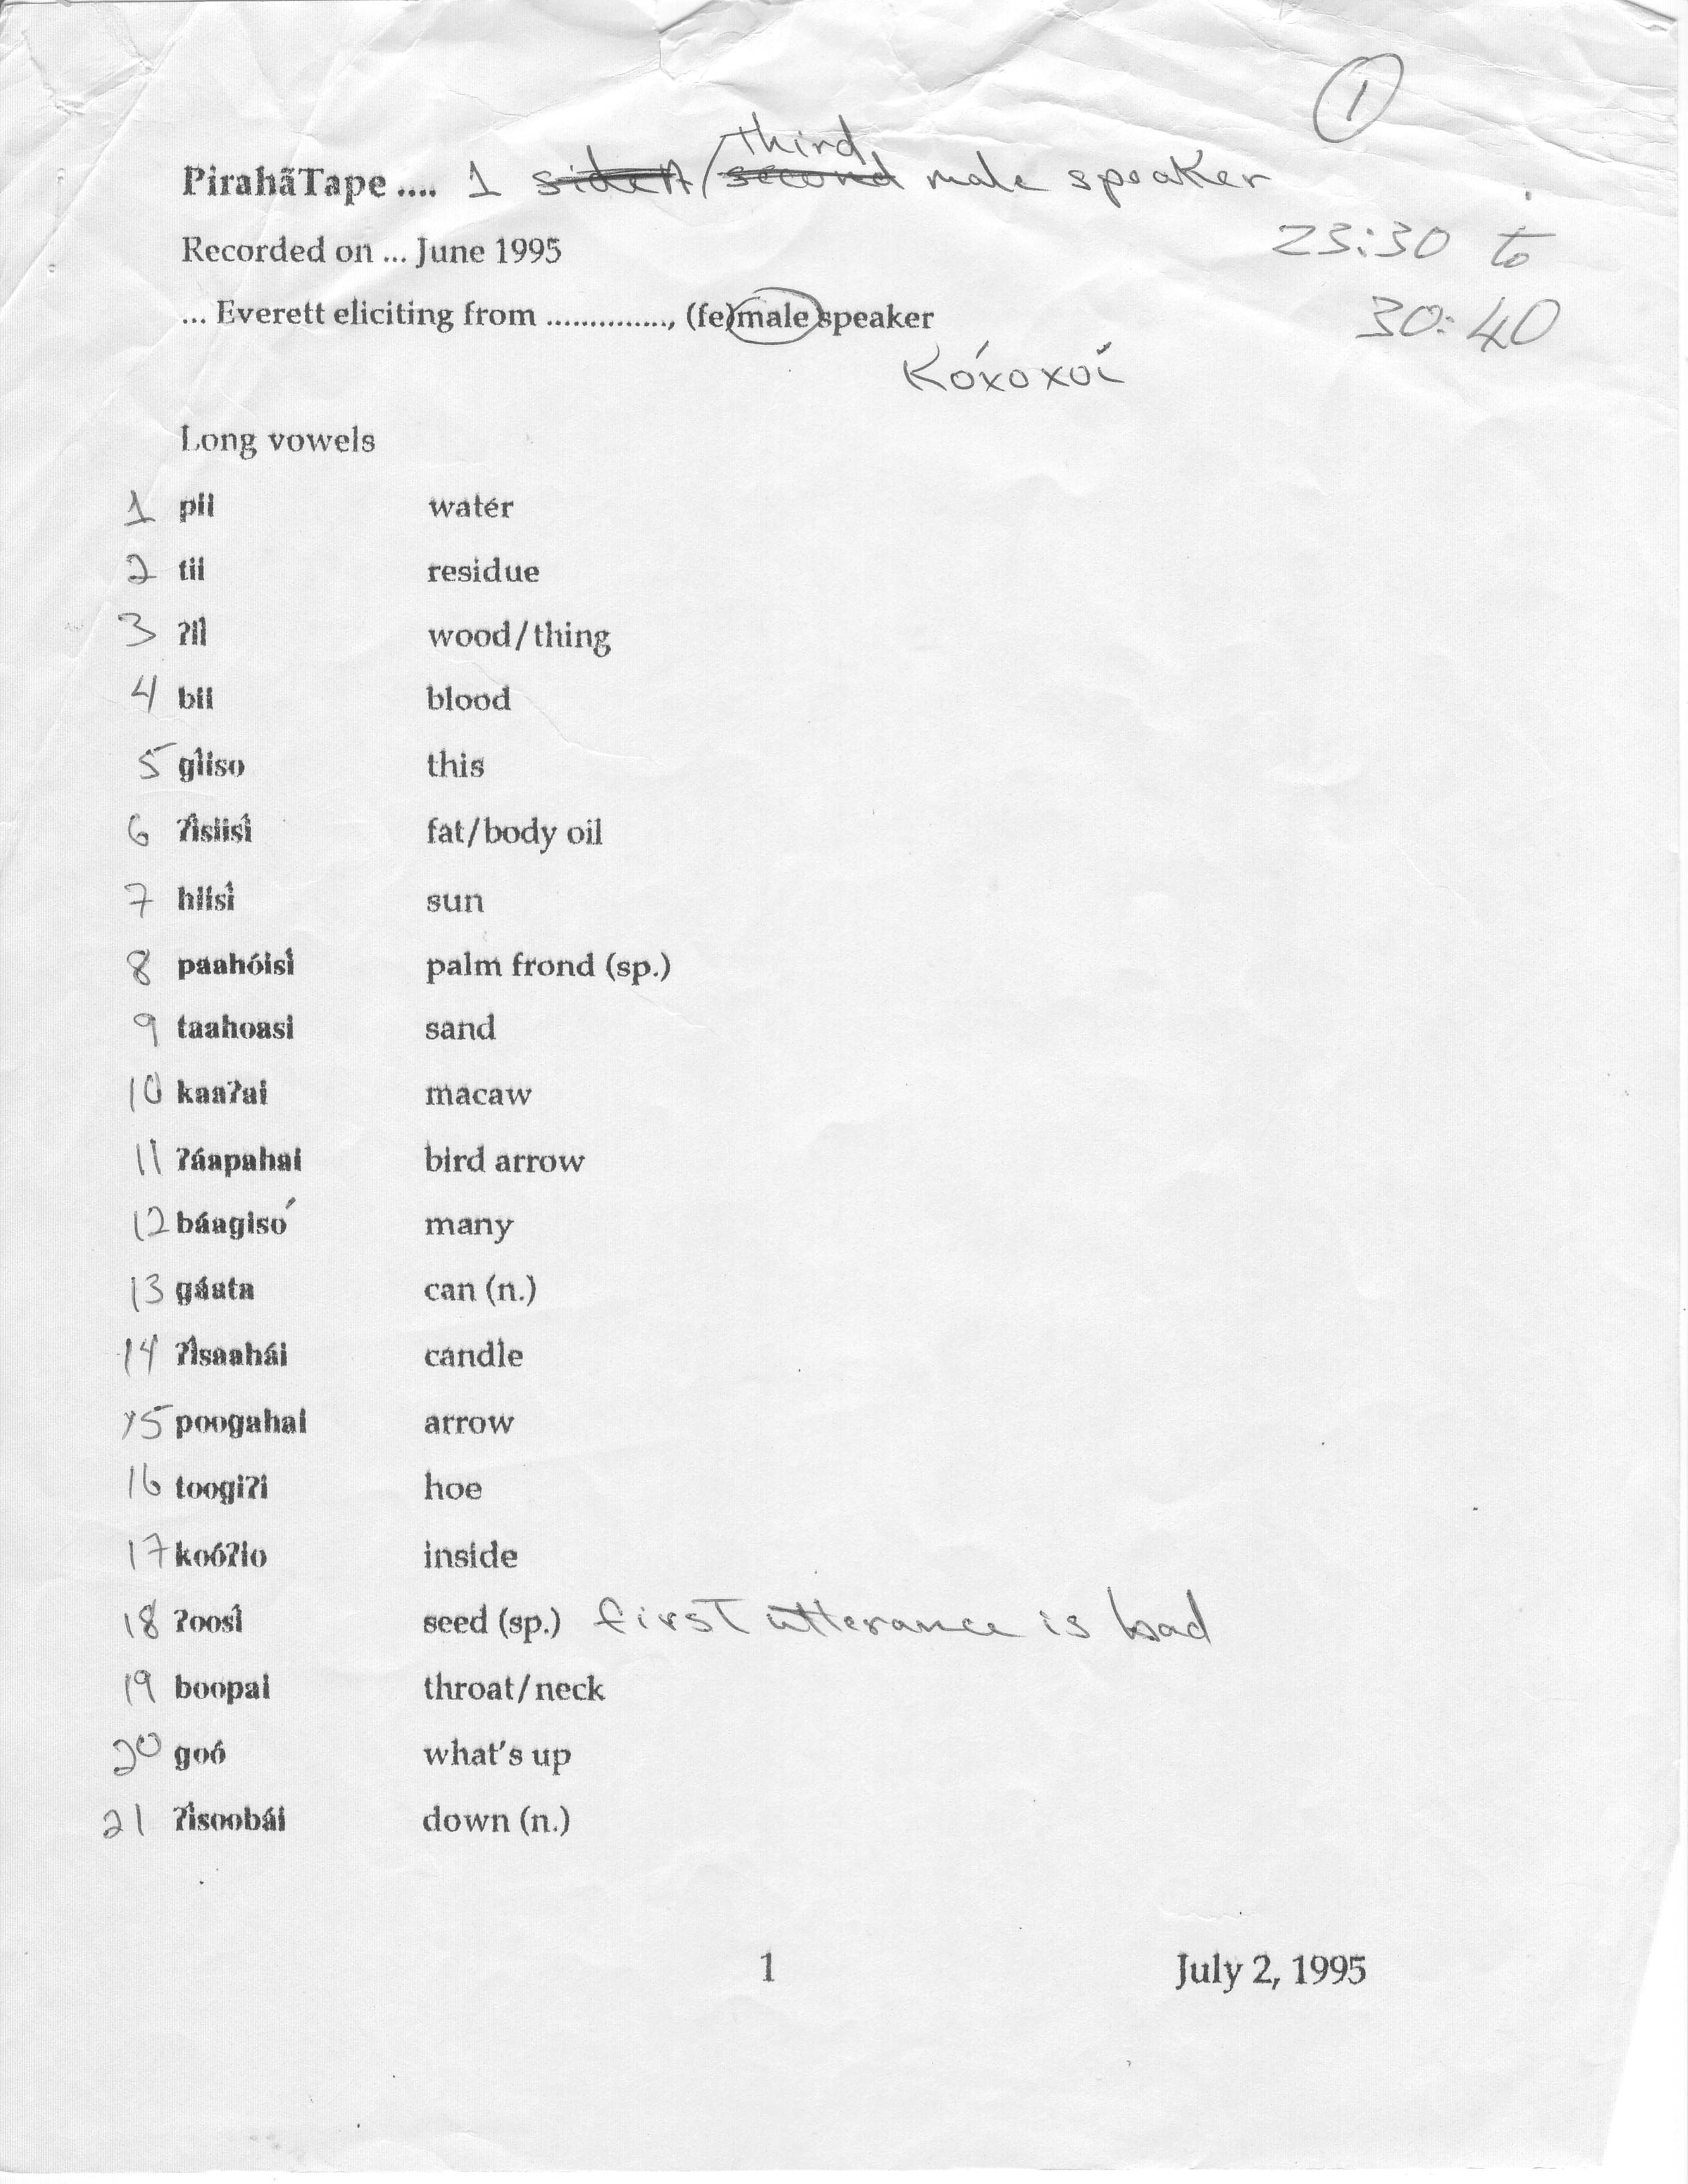 ①
third
PirahãTape .... 1 side A/second male speaker
23:30 to
Recorded on ... June 1995
30:40
... Everett eliciting from .............., (fe)male speaker
Kóxoxoí
Long vowels
1 pii water
2 tii residue
3 ʔií wood/thing
4 bii blood
5 gíiso this
6 ʔísiisí fat/body oil
7 hiisí sun
8 paahóisí palm frond (sp.)
9 taahoasi sand
10 kaaʔai macaw
11 ʔáapahai bird arrow
12 báagisó many
13 gáata can (n.)
14 ʔísaahái candle
15 poogahai arrow
16 toogiʔi hoe
17 koóʔio inside
18 ʔoosí seed (sp.) first utterance is bad
19 boopai throat/neck
20 goó what's up
21 ʔísoobái down (n.)
1 July 2, 1995